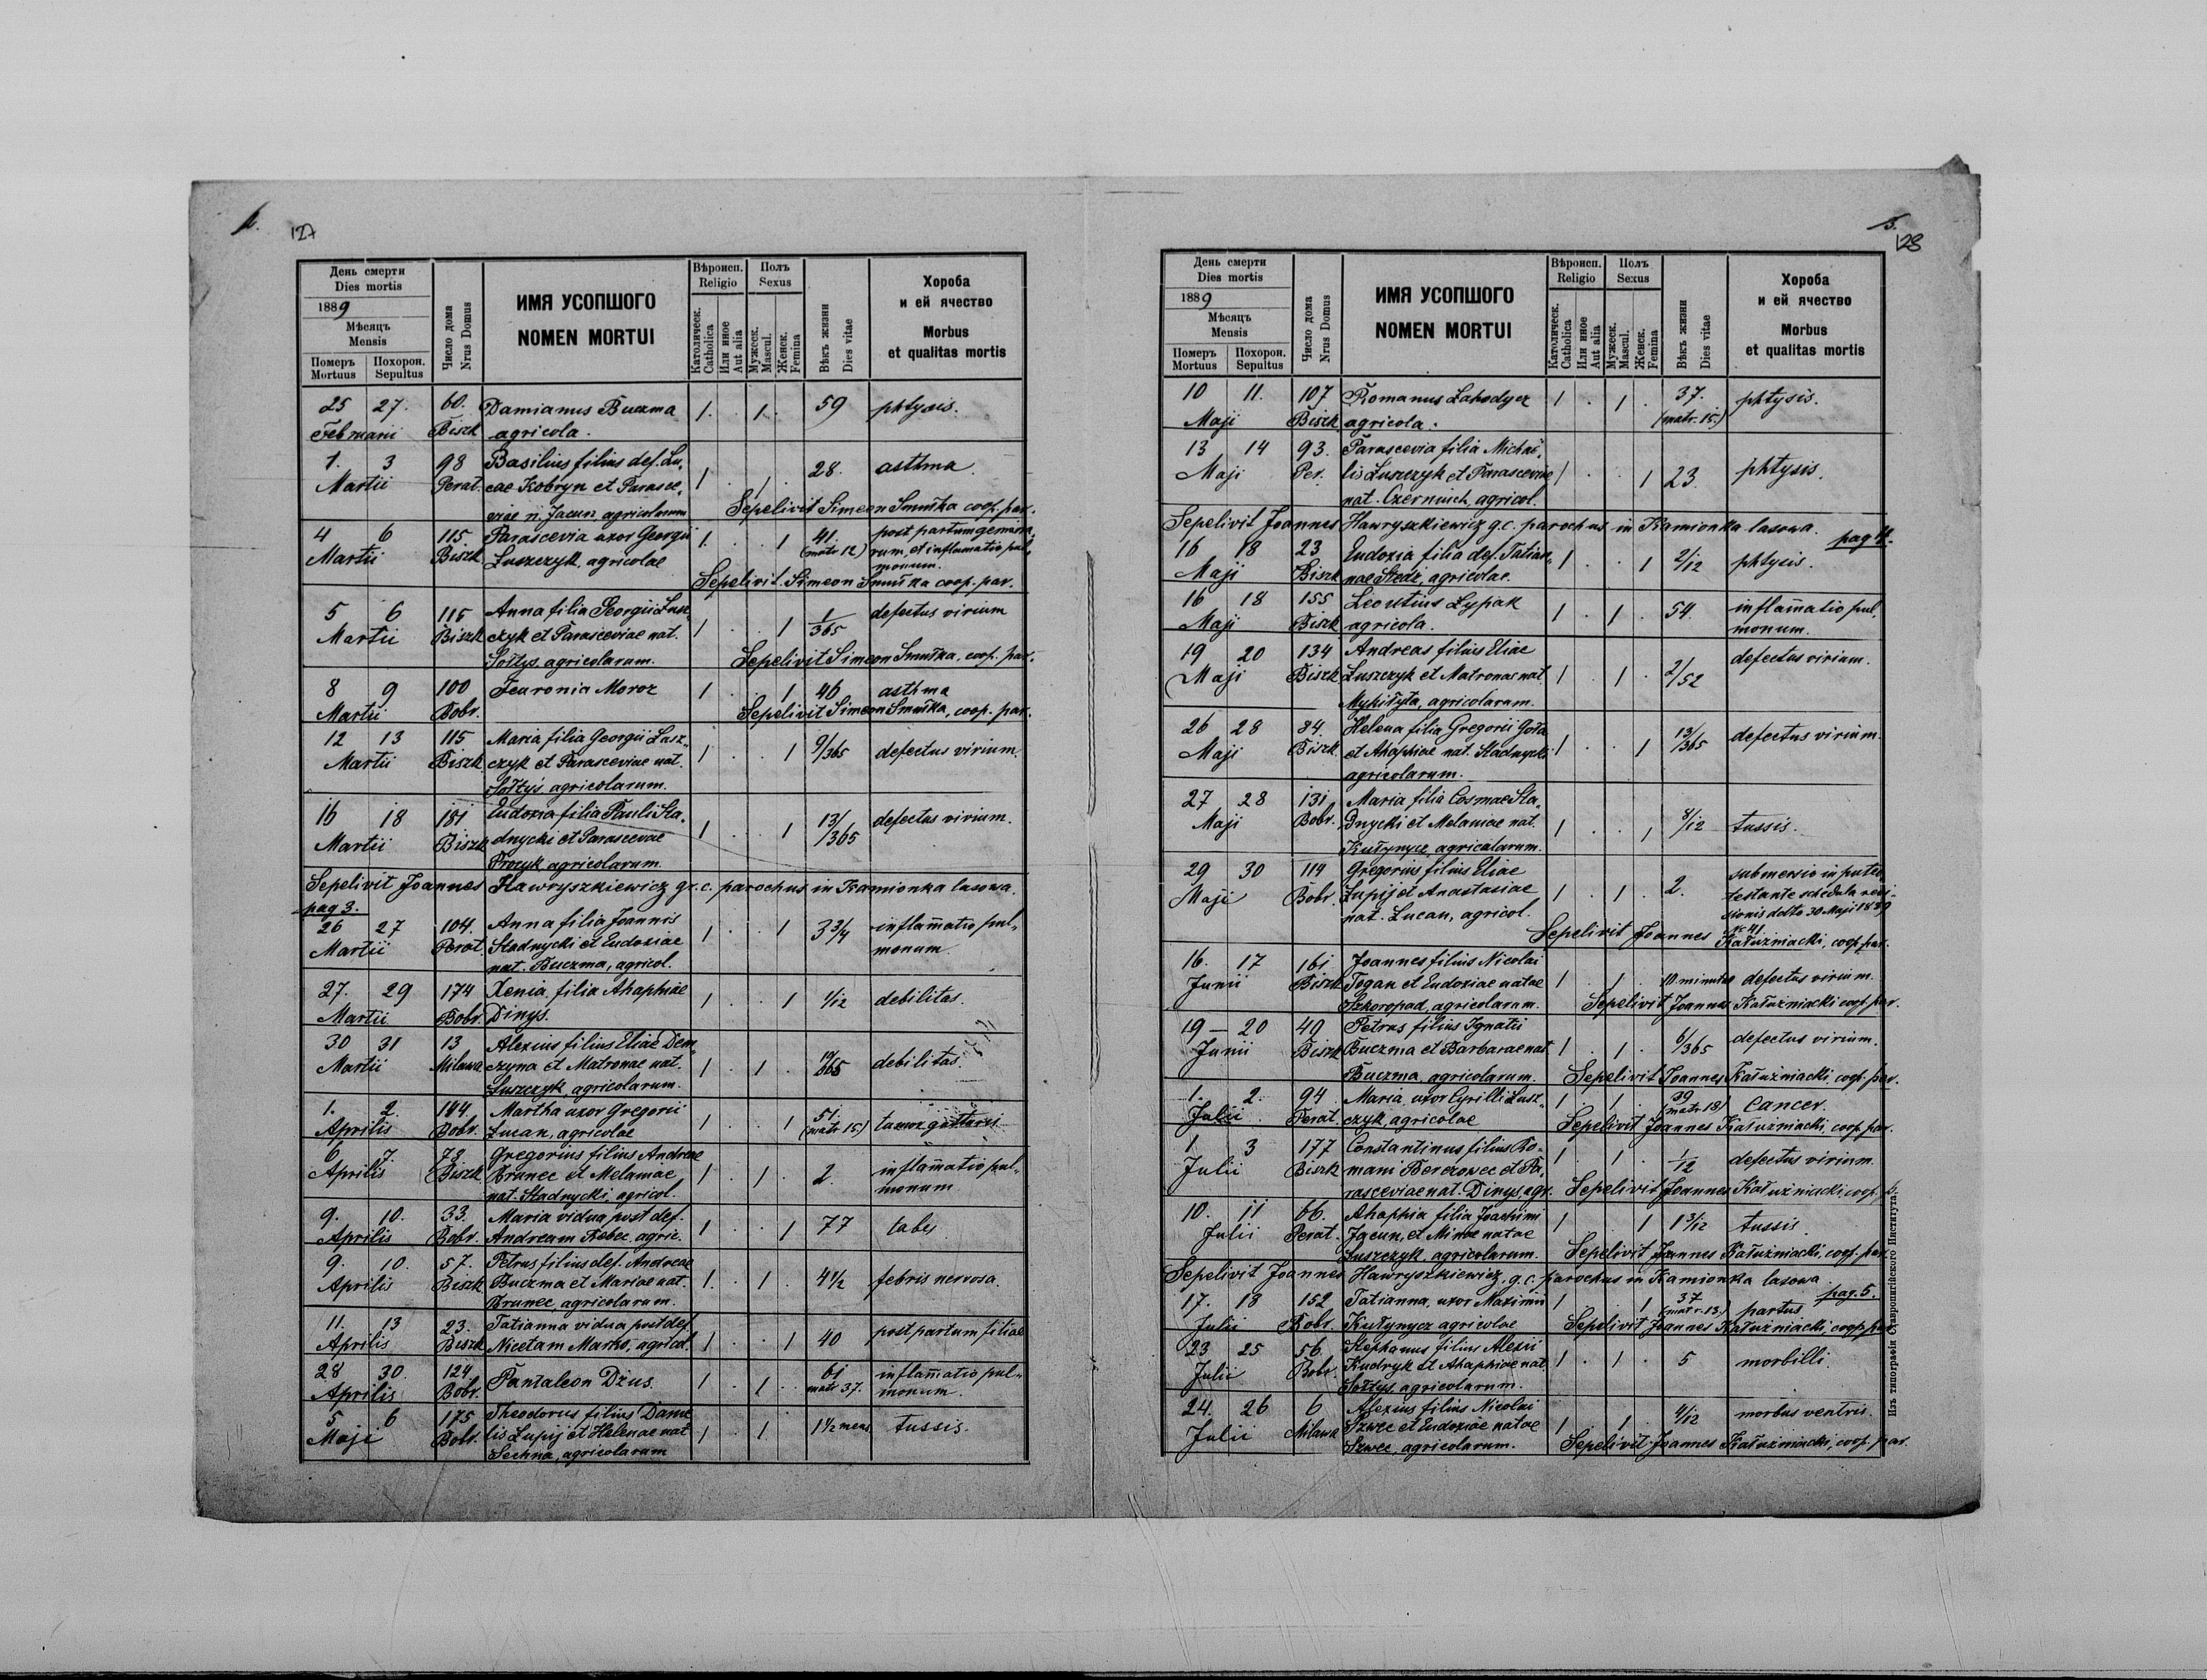 127
День смерти
Dies mortis
1889
Мѣсяцъ
Mensis
Померъ
Mortuus
Похорон.
Sepultus
Число дома
Nrus Domus
ИМЯ УСОПШОГО
NOMEN MORTUI
Вѣроисп.
Religio
Католическ.
Catholica
Или иное
Aut alia
Полъ
Sexus
Мужеск.
Mascul.
Женск.
Femina
Вѣкъ жизни
Dies vitae
Хороба
и ей ячество
Morbus
et qualitas mortis
25 27. 60. Damianus Buczma 1 . 1 . 59 phtysis.
Februarii Biszk agricola.
1. 3 98 Basilius filius def. Lu,
Martii Perat. cae Kobryn et Parasce, 1 . 1 . 28. asthma.
viae n. Jacun, agricolarum Sepelivit Simeon coop. par.
4 6 115. Parascevia uxor Georgii 1. . . 1 41. post partum gemina,
Martii Biszk Łuszczyk, agricolae (matr 12) rum, et inflamatio pul,
monum.
Sepelivit. Simeon coop. par.
5 6 115 Anna filia Georgii Łusz, defectus virium
Martii Biszk czyk et Parasceviae nat. 1 . . 1 1/365
Sołtys, agricolarum. Sepelivit Simeon coop. par.
8 9 100 Feuronia Moroz 1 . . 1 46 asthma
Martii Bobr. Sepelivit Simeon coop. par.
12 13 115 Maria filia Georgii Łusz,
Martii Biszk. czyk et Parasceviae nat. 1 . . 1 9/365 defectus virium
Sołtys agricolarum.
16 18 181 Eudoxia filia Pauli Sta, defectus virium.
Martii Biszk dnycki et Parascevae 1 . . 1 13/365
Prozyk agricolarum.
Sepelivit Joannes Hawryszkiewicz gr. c. parochus in Kamionka lasowa.
pag 3.
26 27 104. Anna filia Joannis inflam̄atio pul„
Martii Perat. Stadnycki et Eudoxiae 1 . . 1 3 3/4 monum
nat. Buczma, agricol.
27. 29 174 Xenia filia Ahaphiae 1 . . 1 1/12 debilitas.
Martii Bobr. Dinys.
30 31 13 Alexius filius Eliae Dem„
Martii Milawa czyna et Matronae nat. 1 . 1 . debilitas.
Łuszczyk, agricolarum.
1. 2. 144. Martha uxor Gregorii 1 . . 1 51.
Aprilis Bobr. Łucan, agricolae (matr 15)
6 7. 78. Gregorius filius Andreae inflam̄atio pul„
Aprilis Biszk Brunec et Melaniae 1 . 1 . 2. monum
nat. Stadnycki, agricol.
9. 10. 33. Maria vidua post def. 1 . . 1 77 tabes
Aprilis Bobr. Andream agric.
9. 10. 57. Petrus filius def. Andreae
Aprilis Biszk Buczma et Mariae nat. 1. . 1 . 4 1/2 febris nervosa.
Brunec, agricolarum.
11. 13 23. Tatianna vidua post def.
Aprilis Biszk Nicetam Marko, agricol. 1 . . 1 40 post partum filiae
28 30. 124. Pantaleon Dżus. 1 . 1 . 61 inflam̄atio pul„
Aprilis Bobr. matr 37. monum.
5 6 175 Theodorus filius Danie
Maji Bobr. lis Łupij et Helenae nat 1 . 1 1 1/2 mens tussis.
Sechna, agricolarum
5.
128
День смерти
Dies mortis
1889
Мѣсяцъ
Mensis
Померъ
Mortuus
Похорон.
Sepultus
Число дома
Nrus Domus
ИМЯ УСОПШОГО
NOMEN MORTUI
Вѣроисп.
Religio
Католическ.
Catholica
Или иное
Aut alia
Полъ
Sexus
Мужеск.
Mascul.
Женск.
Femina
Вѣкъ жизни
Dies vitae
Хороба
и ей ячество
Morbus
et qualitas mortis
10 11. 107 Romanus Łahodycz 1 . 1 . 37. phtysis.
Maji Biszk agricola. (matr. 15.)
13 14 93. Parascevia filia Michaë,
Maji Per. lis Łuszczyk et Parasceviae 1 . . 1 23. phtysis.
nat. Czerniuch, agricol.
Sepelivit Joannes Hawryszkiewicz g. c. parochus in Kamionka lasowa.
pag 4.
16 18 23 Eudoxia filia def. Tatian„ 1 . . 1 2/12 phtysis.
Maji Biszk nae agricolae.
16 18 155 Leontius Łypak 1 . 1 . 54. inflam̄atio pul,
Maji Biszk agricola. monum.
19 20 134 Andreas filius Eliae defectus virium.
Maji Biszk Łuszczyk et Matronae nat. 1 . 1 . 2/52
Mykiłyta, agricolarum.
26 28 84. Helena filia Gregorii Goła
Maji Biszk. et Ahaphiae nat. Stadnycki 1 . . 1 13/365 defectus virium.
agricolarum.
27 28 131 Maria filia Cosmae Sta,
Maji Bobr. dnycki et Melaniae nat. 1 . . 1 8/12 tussis.
Kułynycz, agricolarum.
29 30 114 Gregorius filius Eliae submersio in puteo,
Maji Bobr. Łupij et Anastasiae 1 . 1 . 2. testante schedula revi-
nat. Łucan, agricol. sionis ddto 30 Maji 1889
№ 41.
Sepelivit Joannes Kałużniacki, coop. par.
16. 17 161 Joannes filius Nicolai
Junii Biszk Togan et Eudoxiae natae 1 . 1 . 10 minutes defectus virium.
Szkoropad, agricolarum. Sepelivit Joannes Kałużniacki coop. par.
19 — 20 49 Petrus filius Ignatii
Junii Biszk Buczma et Barbarae nat. 1 . 1 . 6/365 defectus virium.
Buczma, agricolarum. Sepelivit Joannes Kałużniacki, coop. par.
1. 2. 94 Maria, uxor Cyrilli Łusz„ 1 . 1 . 39 cancer.
Julii Perat. czyk, agricolae (matr 18)
Sepelivit Joannes Kałużniacki, coop. par.
1. 3 177 Constantinus filius Ro-
Julii Biszk mani Berezowec et Pa, 1 . 1 . 1/12 defectus virium.
rasceviae nat. Dinys, agr. Sepelivit Joannes Kałużniacki, coop. p.
10. 11 66. Ahaphia filia Joachimi
Julii Perat. Jacun, et Minae natae 1 . . 1 1 3/12 tussis
Łuszczyk, agricolarum. Sepelivit Joannes Kałużniacki, coop. par.
Sepelivit Joannes Hawryszkiewicz, g. c. parochus in Kamionka lasowa.
pag. 5.
17. 18 152 Tatianna, uxor Maximi 1 . . 1 37 partus
Julii Bobr. Kułynycz agricolae (matr. 13.)
Sepelivit Joannes Kałużniacki, coop. par.
23 25 56. Stephanus filius Alexii
Julii Bobr. Kudryk et Ahaphiae nat. 1 . 1 . 5 morbilli.
Sołtys, agricolarum.
24. 26 6 Alexius filius Nicolai 4/12 morbus ventris.
Julii Milawa Szwec et Eudoxiae natae 1 . 1 .
Szwec, agricolarum. Sepelivit Joannes Kałużniacki, coop. par.
Изъ типографіи Ставропигійского Института.